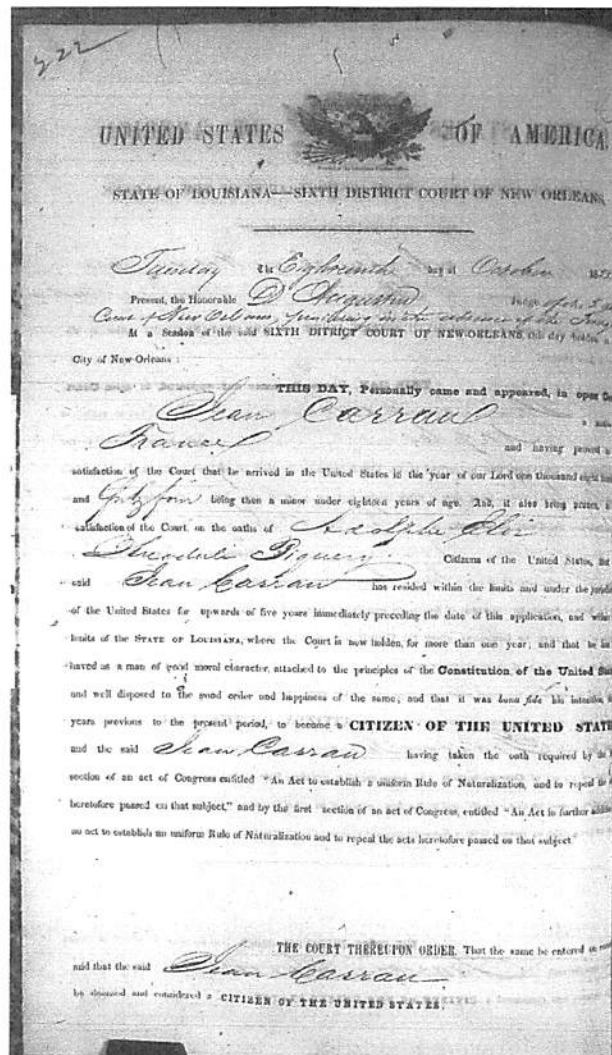 222
UNITED STATES OF AMERICA,
STATE OF LOUISIANA—SIXTH DISTRICT COURT OF NEW ORLEANS,
Tuesday The Eighteenth day of October 18
Present, the Honorable D Augustin Judge of the 5
Court of New Orleans, presiding in the absence of the
At a Session of the said SIXTH DITRICT COURT OF NEW-ORLEANS, this day holden a
City of New-Orleans :
THIS DAY, Personally came and appeared, in open
Jean Carrau a
France and having proved
satisfaction of the Court that he arrived in the United States in the year of our Lord one thousand eight
and fifty four being then a minor under eighteen years of age. And, it also being proven,
satisfaction of the Court, on the oaths of Adolphe
Theodule Citizens of the United States,
said Jean Carrau has resided within the limits and under the
of the United States for upwards of five years immediately preceding the date of this application, and
limits of the STATE OF LOUISIANA, where the Court is now holden, for more than one year; and that he
haved as a man of good moral character, attached to the principles of the Constitution of the United
and well disposed to the good order and happiness of the same; and that it was bona fide his
years previous to the present period, to become a CITIZEN OF THE UNITED STATE
and the said Jean Carrau having taken the oath required by
section of an act of Congress entitled "An Act to establish a uniform Rule of Naturalization, and to repeal
heretofore passed on that subject," and by the first section of an act of Congress, entitled "An Act in further
an act to establish an uniform Rule of Naturalization and to repeal the acts heretofore passed on that subject"
THE COURT THEREUPON ORDER, That the same be entered
and that the said Jean Carrau
be deemed and considered a CITIZEN OF THE UNITED STATES.